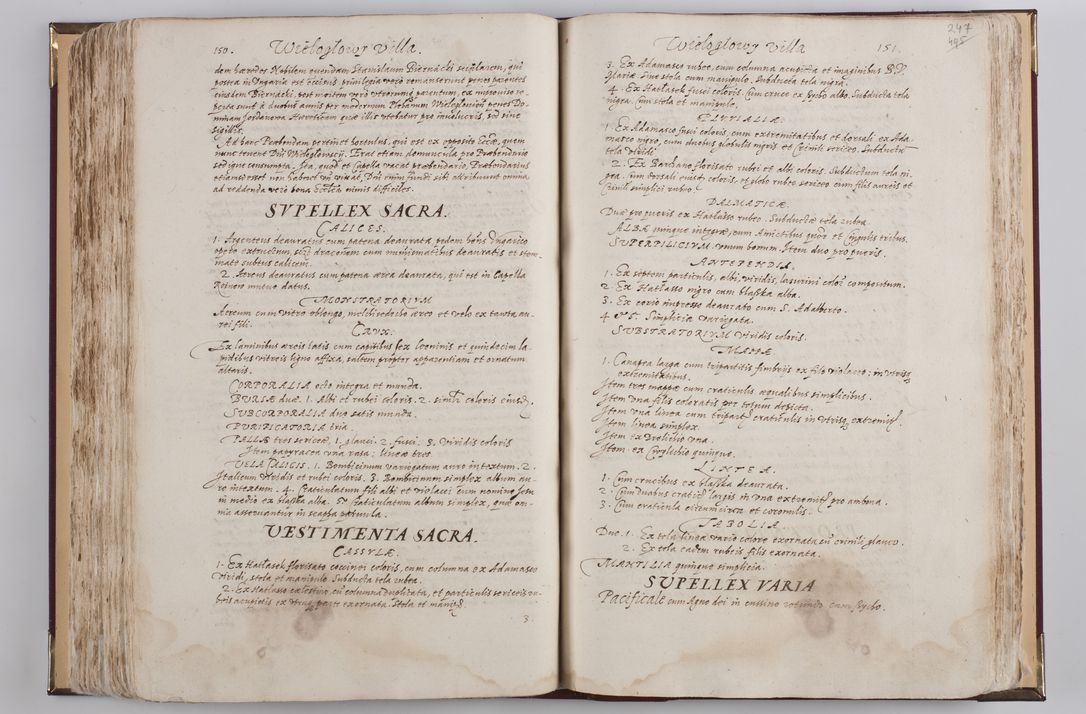 150. Wielogłowy Villa.
dem hæredes Nobilem quendam Stanislaum Biernacki sęcularem, qui
postea in Ungaria est occisus, privilegia verò remanserunt penes parentes
eiusdem Biernacki, post mortem verò utrorumque parentum, ex improviso re-
perta sunt à duobus annis per modernum Plebanum Wieloglovien: penes Do-
minam Jordanowa Hæreticam quæ illis utebatur pro involucris, sed sine
sigillis.
Ad hanc Præbendam pertinet hortulus, qui est ex opposito Eccłæ, quem
nunc tenent Dni Wielogłowscij. Erat etiam domuncula pro Præbendario
sed igne consumpta. Ita, quod et Capella vacat præbendario, Præbendarius
etiamsi esset non haberet vnde vivat, Dni enim fundi sibi attribuunt omnia
ad reddenda verò bona Eccłica nimis difficiles.
SVPELLEX SACRA.
CALICES.
1. Argenteus deauratus cum patena deaurata, pedem habens Vngarico
opere extructum, sive draconem cum numismatibus deauratis et stem-
mate subtus calicem.
2. Aereus deauratus cum patena ærea deaurata, qui est in Capella
mutuo datus.
MONSTRATORIVM
Aereum cum vitro oblongo, melchisedecho æreo et velo ex
rei fili.
CRVX.
Ex laminibus æreis latis cum capitibus sex leoninis et quindecim la-
pidibus vitreis ligno affixa, saltem propter apparentiam et ornatum
altaris.
CORPORALIA octo integra et munda.
BURSÆ duæ. 1. Albi et rubei coloris. 2. simili coloris eiusdem
SVBCORPORALIA duo satis munda.
PVRIFICATORIA tria.
PALLÆ tres sericeæ, 1. glauci. 2. fusci. 3. viridis coloris
Item papyracea una rasa: lineæ tres.
VELA CALICIS. 1. Bombicinum variegatum auro intextum. 2.
Italicum viridis et rubei coloris. 3. Bombicinum simplex album au-
ro intextum. 4. Reticulatum fili albi et violacei cum nomine Jesu
in medio ex blaszka alba. 5. Reticulatum album simplex, quæ om-
nia asservantur in scapha patula.
VESTIMENTA SACRA.
CASSVLÆ.
1. Ex Hatłasek florisato coccinei coloris, cum columna ex Adamasco
viridi, stola et manipulo. Subducta tela rubea.
2. Ex Hatlasso cælestino, cum columna duplicata, et particulis sericeis ru-
beis acupictis ex utraque parte exornata. Stola et manipulo
3
247
495
Wielogłowy Villa 151.
3. Ex Adamasco rubeo, cum columna acupicta et imaginibus B.V.
Mariæ. Sine stola cum manipulo. Subducta tela nigra.
4. Ex Hatłasek fusci coloris. Cum cruce ex sycbo albo. Subducta tela
nigra. Cum stola et manipulo.
PLVVIALIA.
1. Ex Adamasco fusci coloris, cum extremitatibus et dorsali ex Ada-
masco nigro, cum duobus globulis nigris et Crimili sericeo. Subductum
tela viridi
2. Ex Barchano florisato rubei et albi coloris. Subductum tela ni-
gra. Cum dorsali eiusdem coloris, et globo rubeo sericeo cum filis aureis et
Crimili simplici rubeo
DALMATICÆ.
Duæ pro pueris ex Hatłasso rubeo. Subductæ tela rubea.
ALBÆ quinque integræ, cum Amictibus quatuor et Cingulis tribus.
SVPERPILICIVM. unum bonum. Item duo pro pueris.
ANTEPENDIA.
1. Ex septem particulis, albi, viridis, lasurini coloris compositum.
2. Ex Hatłasso nigro cum blaszka alba.
3. Ex corio impresso deaurato cum S. Adalberto.
4 et 5. Simplicia variegata.
SVBSTRATORIVM viridis coloris.
MAPPÆ
1. Canapea larga cum tripartitis fimbriis ex filo violaceo; in utrisque
extremitatibus.
Item tres mappæ cum craticulis æqualibus simplicibus.
Item una filis coloratis per totum depicta.
Item una linea cum tripart: craticulis in utrisque extremit:
Item linea simplex.
Item ex Drelicho una.
Item ex Cwylicho quinque.
LINTEA.
1. Cum crucibus ex blaszka deaurata.
2. Cum duabus cratic: largis in una extremit: pro ambona.
3. Cum craticula circumcirca et coronulis.
TABOLIA
Duo. 1. Ex tela linea vario colore exornata cum crimili glauco.
2. Ex tela eadem rubeis filis exornata.
MANTILIA quinque simplicia.
SVPELLEX VARIA
Pacificale cum Agno dei in cussino rotundo cum sycbo.